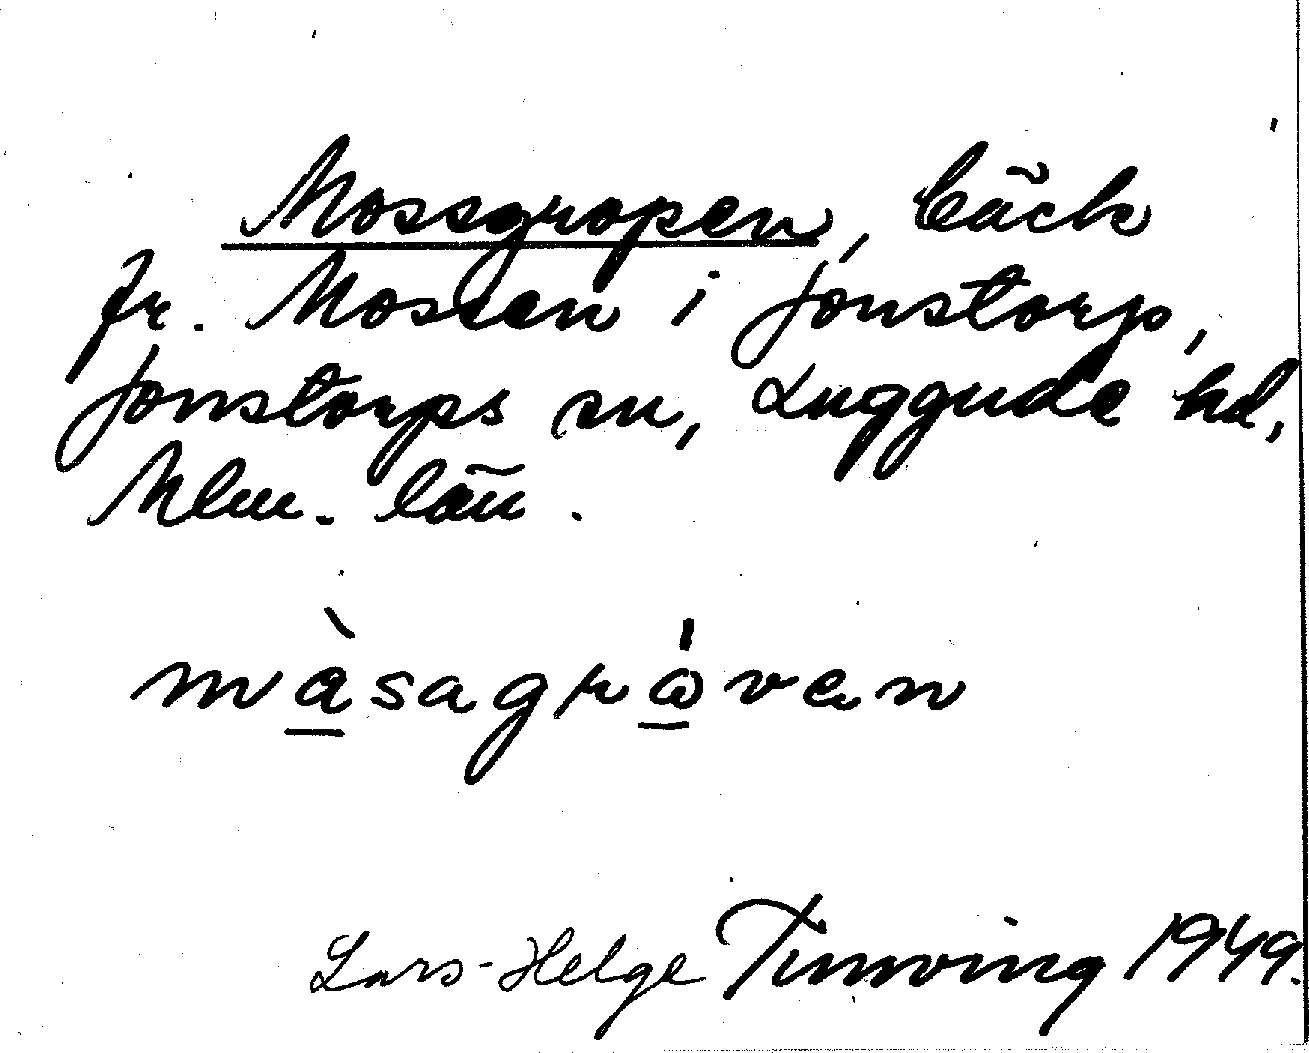 Mossgropen, bäck
fr. Mossen i Jonstorp,
Jonstorps sn, Luggude hd,
Mlm. län.
màsagrá̱van
Lars-Helge Tinnving 1949.